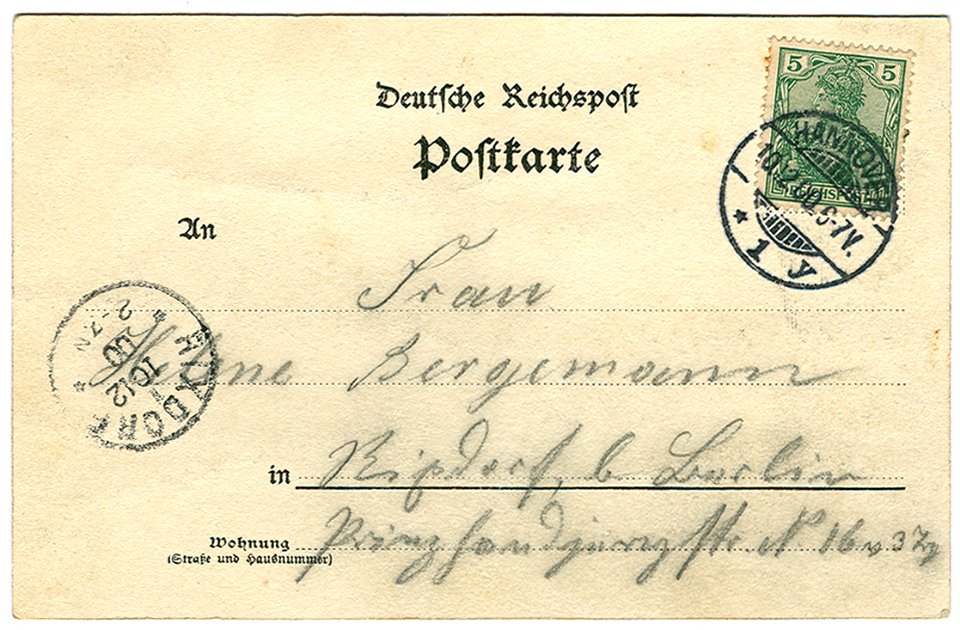 Deutsche Reichspost
Postkarte
5 5
REICHSPOST
HANNOVER
10.12.00.6-7V.
* 1 y *
An
Frau
Helene Bergemann
RIXDORF
10.12.00
2-7N
in Rixdorf b. Berlin
Wohnung
(Straße und Hausnummer)
Prinz Handjerystr. N 16 v 3 Tr